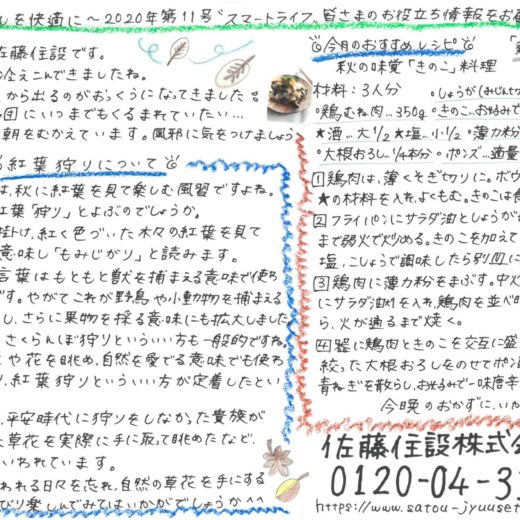 しを快適に～2020年第11号 スマートライフ 皆さまのお役立ち情報をお
佐藤住設です。
冷えこんできましたね。
から出るのがおっくうになってきました。
団にいつまでもくるまれていたい…
朝をむかえています。風邪に気をつけましょう
紅葉狩りについて
は、秋に紅葉を見て楽しむ風習ですよね。
紅葉「狩り」とよぶのでしょうか。
掛け、紅く色づいた木々の紅葉を見て
意味し「もみじがり」と読みます。
言葉はもともと獣を捕まえる意味で使わ
です。やがてこれが野鳥や小動物を捕まえる
し、さらに果物を採る意味にも拡大しました
さくらんぼ狩りといういい方も一般的ですね。
くや花を眺め、自然を愛でる意味でも使わ
り、紅葉狩りといういい方が定着したとい
、平安時代に狩りをしなかった貴族が
草花を実際に手に取って眺めたなど、
いわれています。
われる日々を忘れ、自然の草花を手にする
びり楽しんでみてはいかがでしょうか^^
今月のおすすめレシピ
秋の味覚「きのこ」料理
材料：3人分
しょうが(みじん切
鶏むね肉…350g
きのこ…お好みで
★酒…大1/2 ★塩…小1/2
薄力粉
大根おろし…1/4本分
ポンズ…適量
1 鶏肉は、薄くそぎ切りに。ボウ
★の材料を入れ、よくもむ。きのこは食
2 フライパンにサラダ油としょうが
まで弱火で炒める。きのこを加えて
塩、こしょうで調味したら別皿に
3 鶏肉に薄力粉をまぶす。中火
にサラダ油を入れ、鶏肉を並べ
ら、火が通るまで焼く。
4 器に鶏肉ときのこを交互に盛
絞った大根おろしをのせてポン
青ねぎを散らし、お好みで一味唐辛
今晩のおかずに、いか
佐藤住設株式会
0120-04-3
https://www.satou-jyuuset